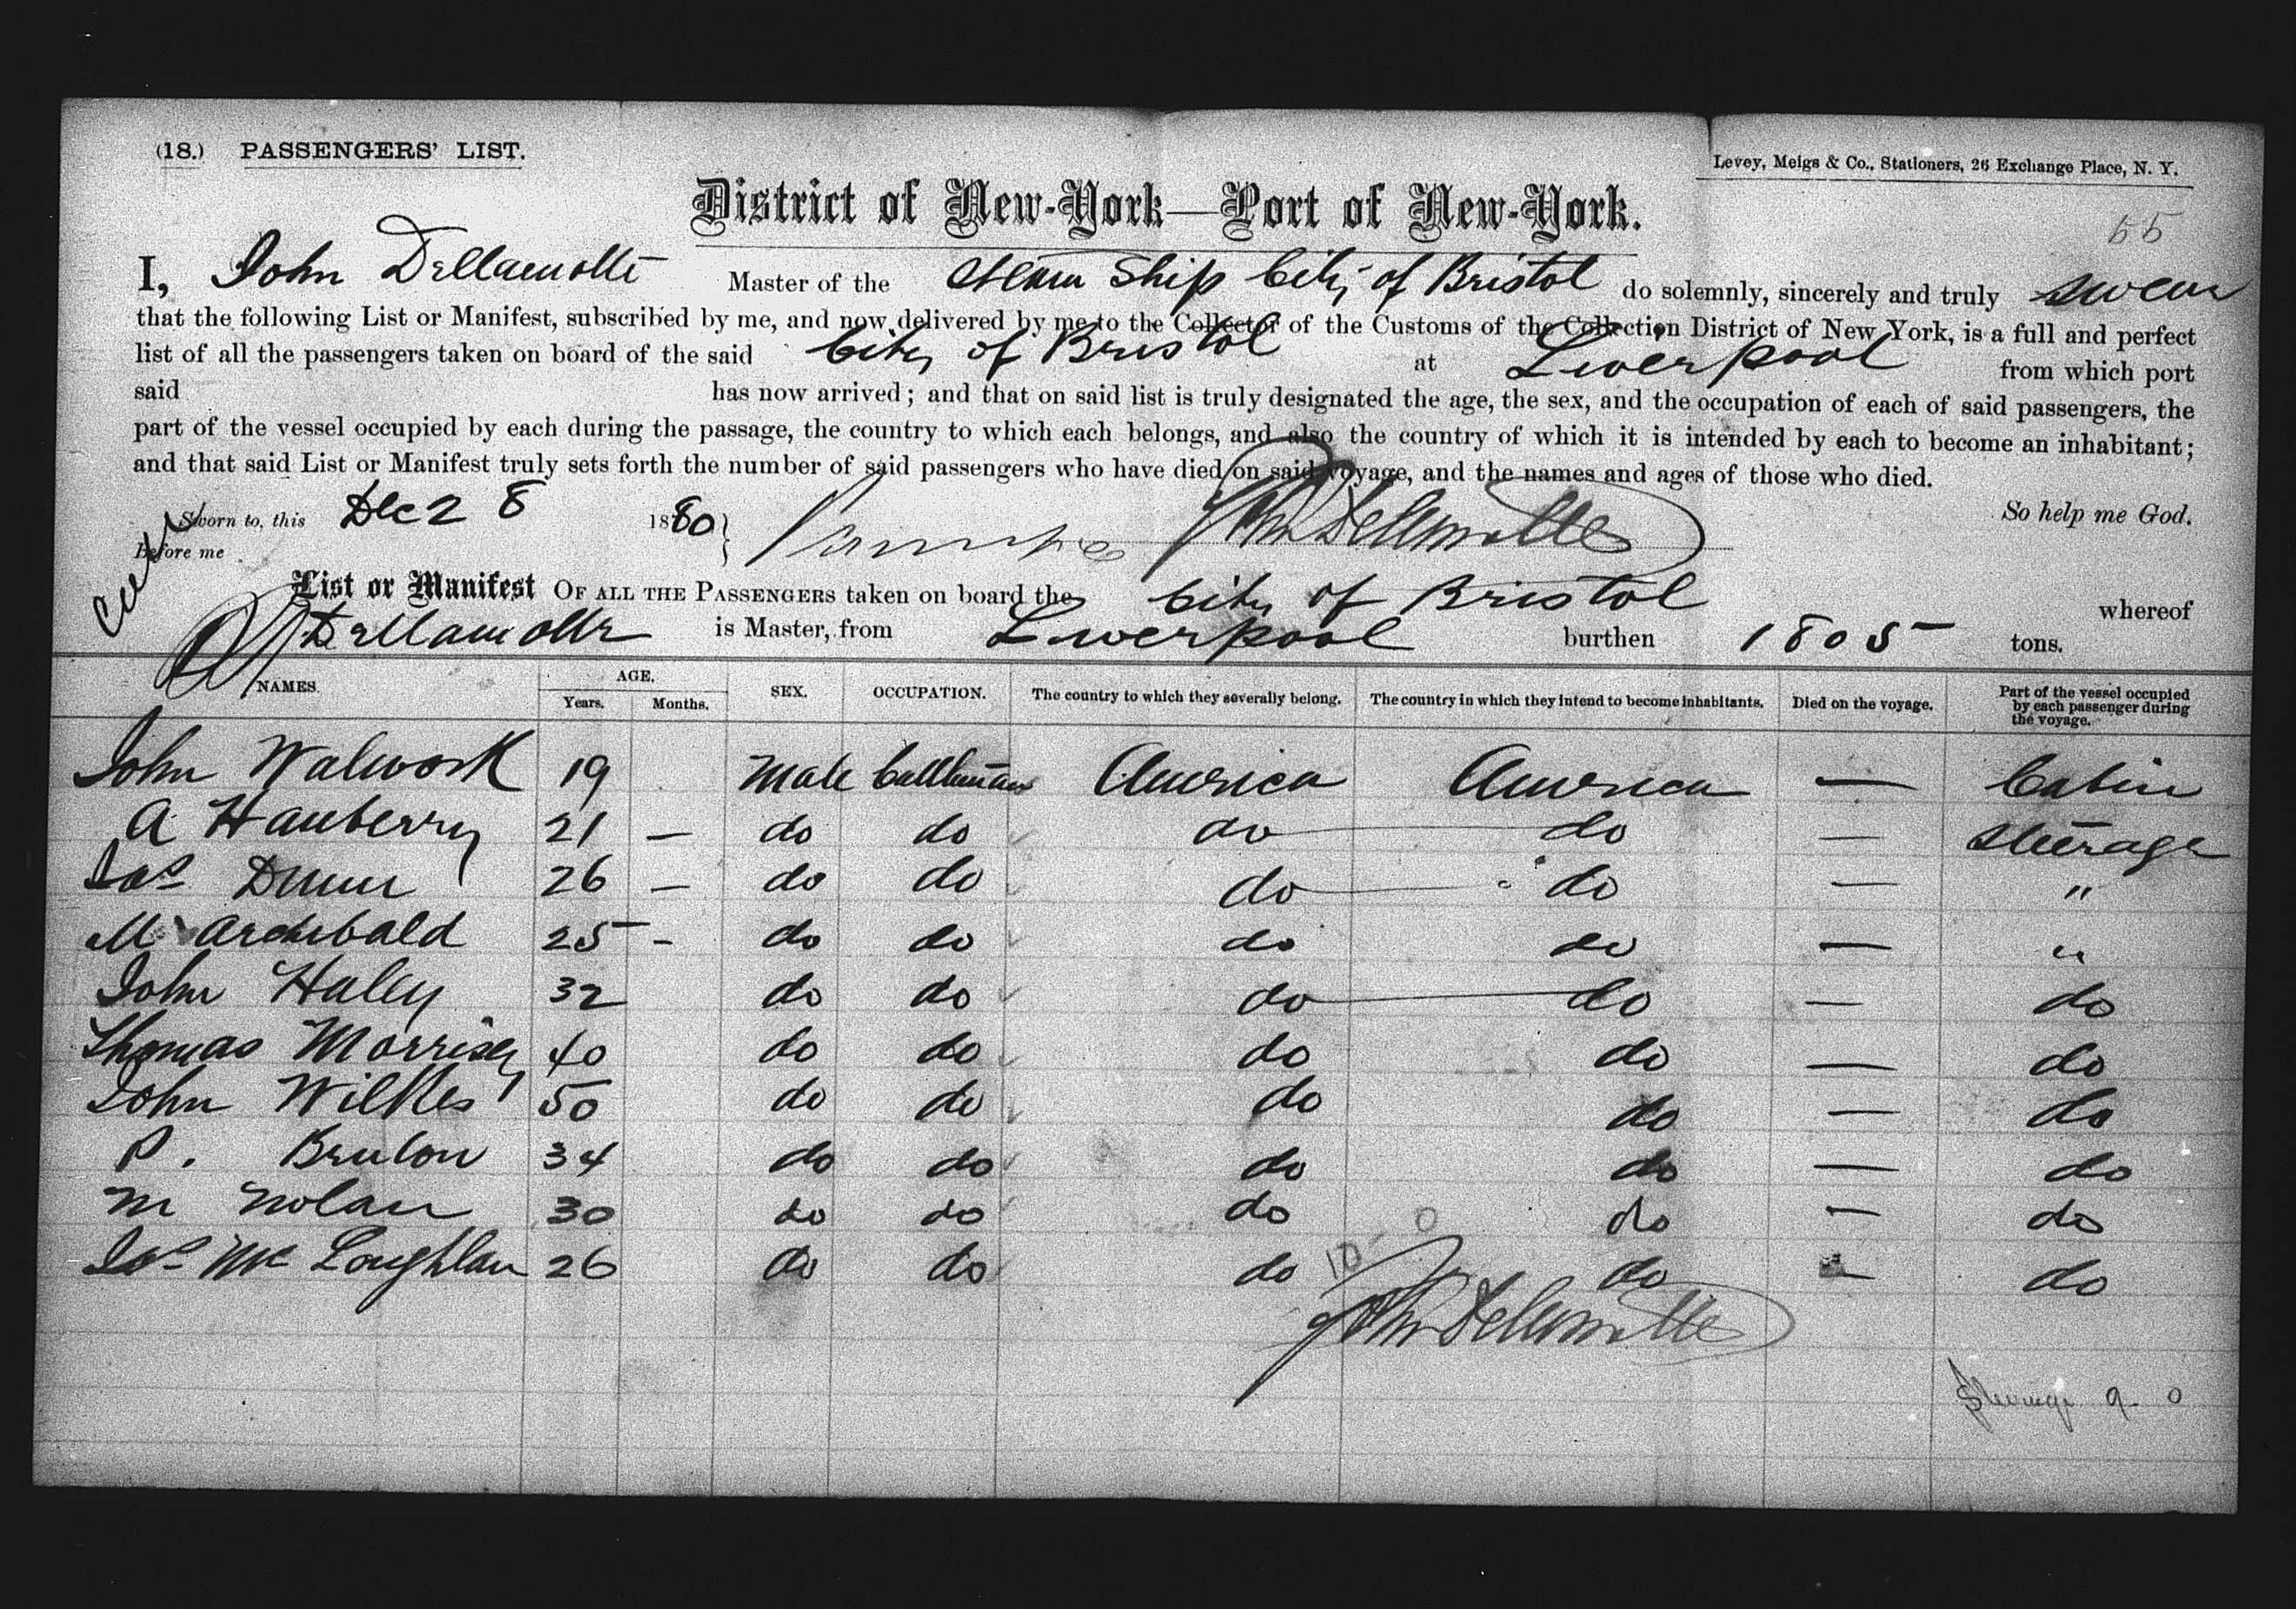 (18.) PASSENGERS' LIST.
Levey, Meigs & Co., Stationers, 26 Exchange Place, N. Y.
District of New-York—Port of New-York.
55
I, John Dellamotte Master of the Steam Ship City of Bristol do solemnly, sincerely and truly swear
that the following List or Manifest, subscribed by me, and now delivered by me to the Collector of the Customs of the Collection District of New York, is a full and perfect
list of all the passengers taken on board of the said City of Bristol at Liverpool from which port
said has now arrived; and that on said list is truly designated the age, the sex, and the occupation of each of said passengers, the
part of the vessel occupied by each during the passage, the country to which each belongs, and also the country of which it is intended by each to become an inhabitant;
and that said List or Manifest truly sets forth the number of said passengers who have died on said voyage, and the names and ages of those who died.
Sworn to, this Dec 28 1880 } John Dellamotte So help me God.
Before me
List or Manifest OF ALL THE PASSENGERS taken on board the City of Bristol whereof
Dellamotte is Master, from Liverpool burthen 1805 tons.
NAMES. AGE. Years. Months. SEX. OCCUPATION. The country to which they severally belong. The country in which they intend to become inhabitants. Died on the voyage. Part of the vessel occupied by each passenger during the voyage.
John Walwork 19 Male Cattleman America America — Cabin
A Hanberry 21 — do do do do — Steerage
Jas Dunn 26 — do do do do — "
M Archibald 25 - do do do do — "
John Haley 32 do do do do — do
Thomas Morrisey 40 do do do do — do
John Wilkes 50 do do do do — do
P. Brulon 34 do do do do — do
M Nolan 30 do do do do — do
Jas Mc Loughlan 26 do do do do — do
10 - 0
John Dellamotte
Steerage 9 - 0